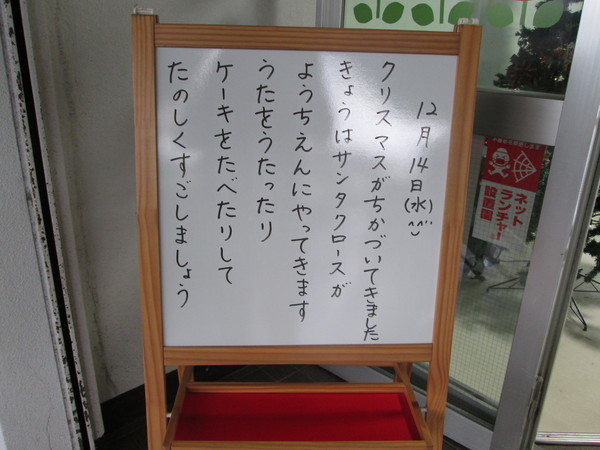 12月14日(水)^^
クリスマスがちかづいてきました
きょうはサンタクロースが
ようちえんにやってきます
うたをうたったり
ケーキをたべたりして
たのしくすごしましょう
ネット
ランチャー
設置園